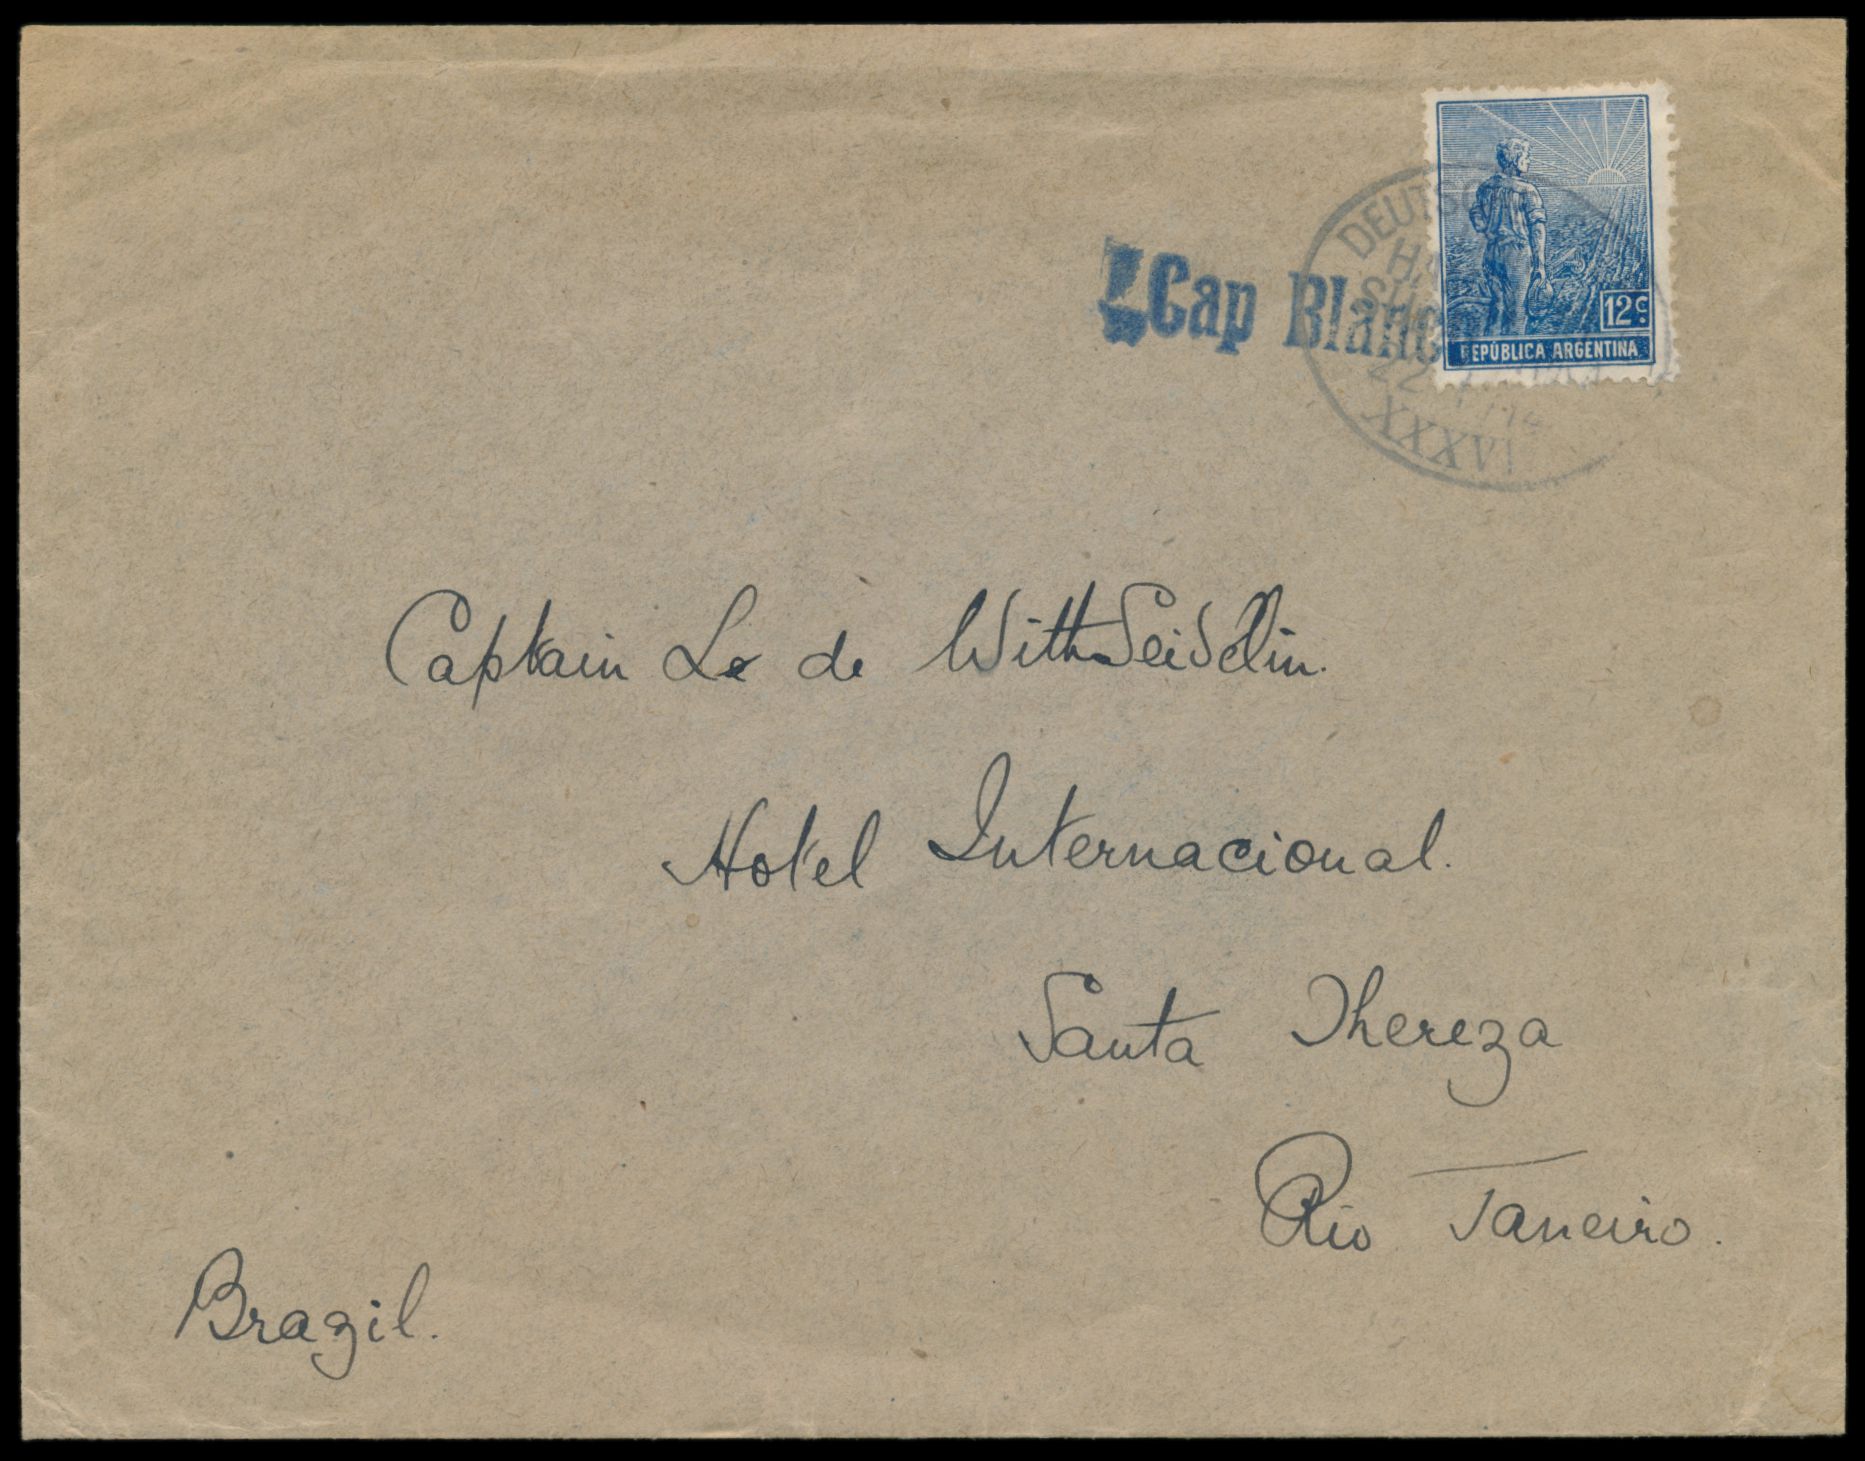 Cap Blanc
12c.
REPÚBLICA ARGENTINA
DEUTSC
22
14
XXXVI
Captain Le de With Seidelin.
Hotel Internacional.
Santa Thereza
Rio Janeiro.
Brazil.